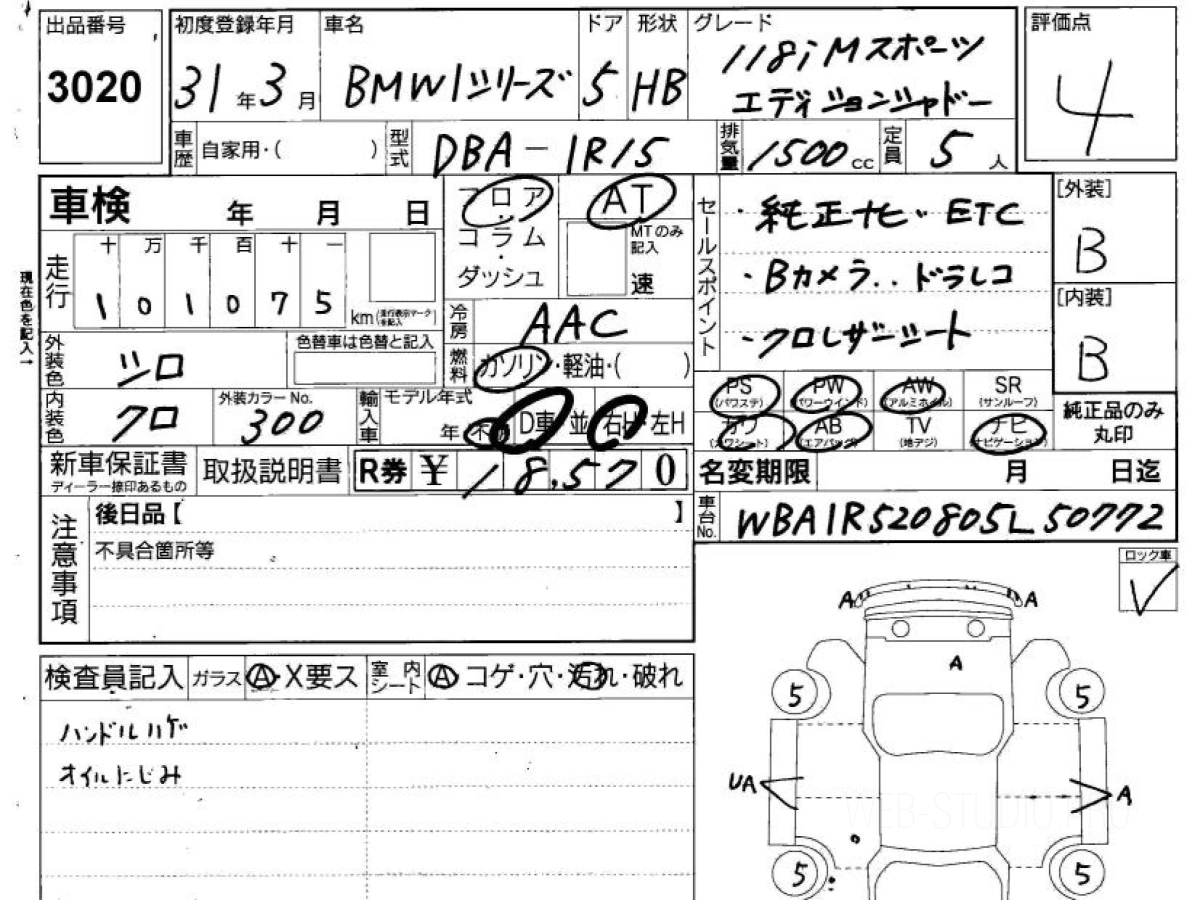 出品番号 初度登録年月 車名 ドア 形状 グレード 評価点
3020 31年3月 BMW1シリーズ 5 HB 118i Mスポーツ
エディションシャドー
4
車歴 自家用・( ) 型式 DBA-1R15 排気量 1500cc 定員 5人
車検 年 月 日
フロア・コラム・ダッシュ
AT
MTのみ記入
速
セールスポイント
・純正ナビ・ETC
・Bカメラ..ドラレコ
・クロレザーシート
[外装]
B
[内装]
B
現在色を記入→
走行 十 万 千 百 十 一
1 0 1 0 7 5 km(走行表示マークを記入)
冷房 AAC
外装色 シロ
色替車は色替と記入
燃料 ガソリン・軽油・( )
PS (パワステ) PW (パワーウインド) AW (アルミホイル) SR (サンルーフ)
カワ (カワシート) AB (エアバッグ) TV (地デジ) ナビ (ナビゲーション)
純正品のみ丸印
内装色 クロ
外装カラーNo. 300
輸入車 モデル年式 年 不 D車 並 右H 左H
新車保証書 ディーラー捺印あるもの
取扱説明書
R券 ¥18,570
名変期限 月 日迄
車台No. WBA1R520805L50772
注意事項
後日品【 】
不具合箇所等
ロック車
A A
A
5 5
UA A
5 5
検査員記入 ガラス A・X要ス 室内シート A コゲ・穴・汚れ・破れ
ハンドルハゲ
オイルにじみ
WEB-STUDIO.PRO